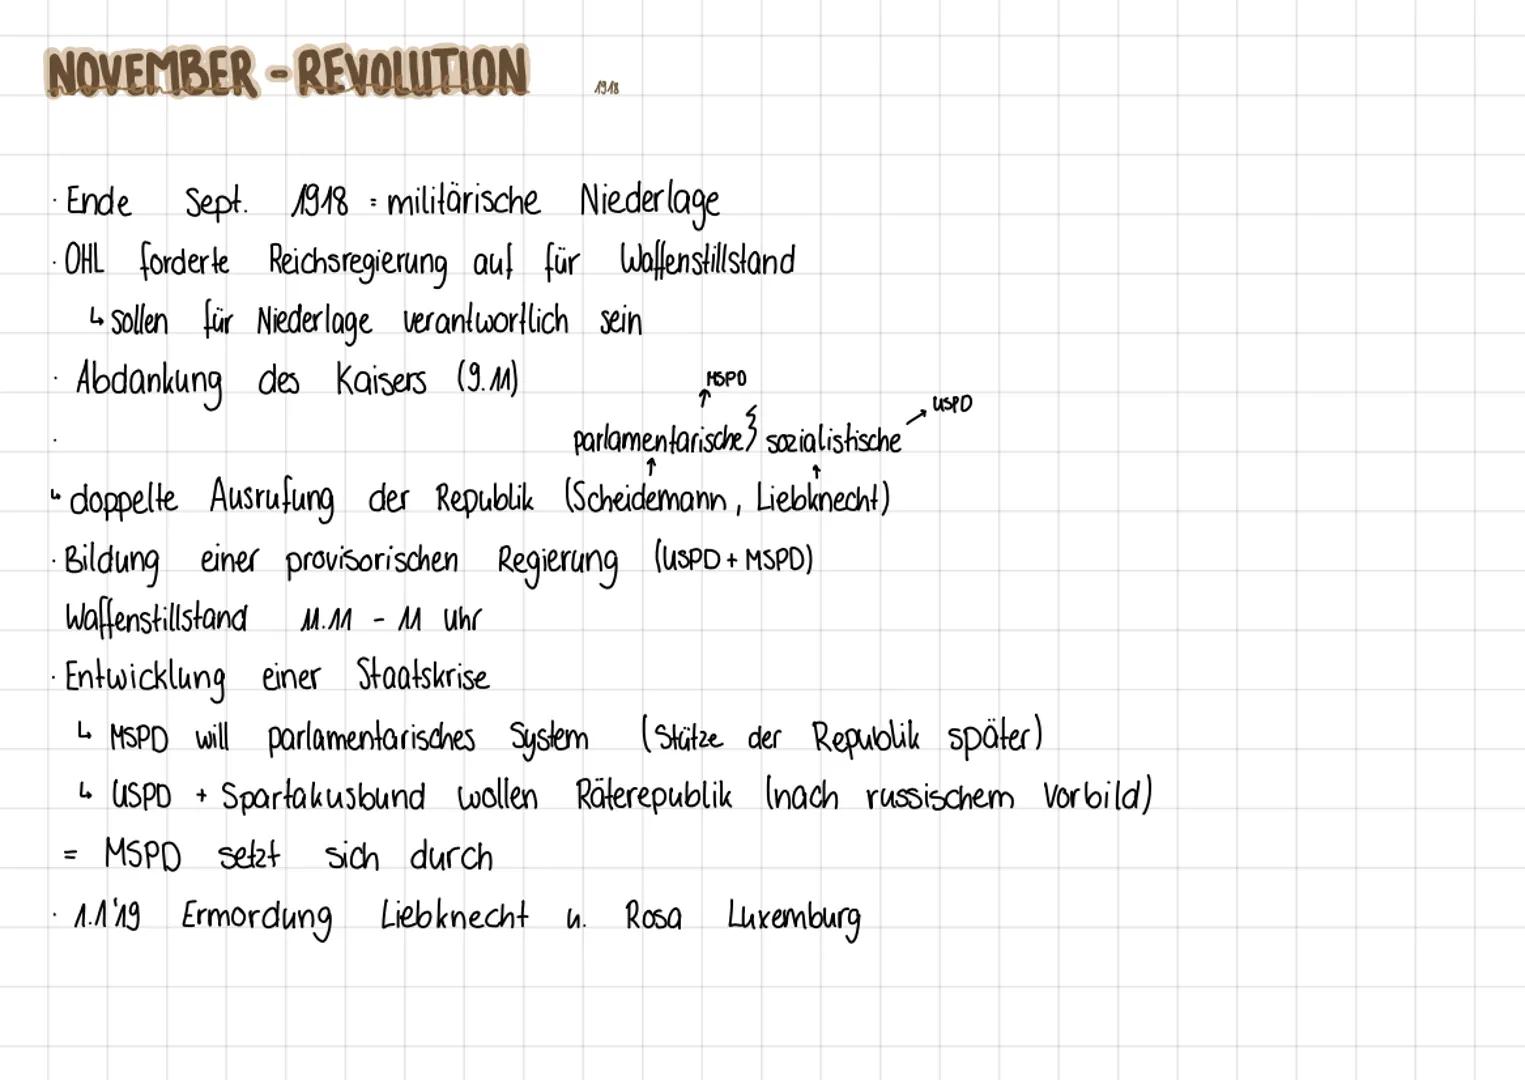 NOVEMBER - REVOLUTION 1918
· Ende Sept. 1918 = militärische Niederlage
· OHL forderte Reichsregierung auf für Waffenstillstand
↳ sollen für Niederlage verantwortlich sein
· Abdankung des Kaisers (9.11)
↑ MSPD
↗ USPD
parlamentarische } sozialistische
↑ ↑
↳ doppelte Ausrufung der Republik (Scheidemann, Liebknecht)
· Bildung einer provisorischen Regierung (USPD + MSPD)
Waffenstillstand 11.11 - 11 Uhr
· Entwicklung einer Staatskrise
↳ MSPD will parlamentarisches System (Stütze der Republik später)
↳ USPD + Spartakusbund wollen Räterepublik (nach russischem Vorbild)
= MSPD setzt sich durch
· 1.1'19 Ermordung Liebknecht u. Rosa Luxemburg